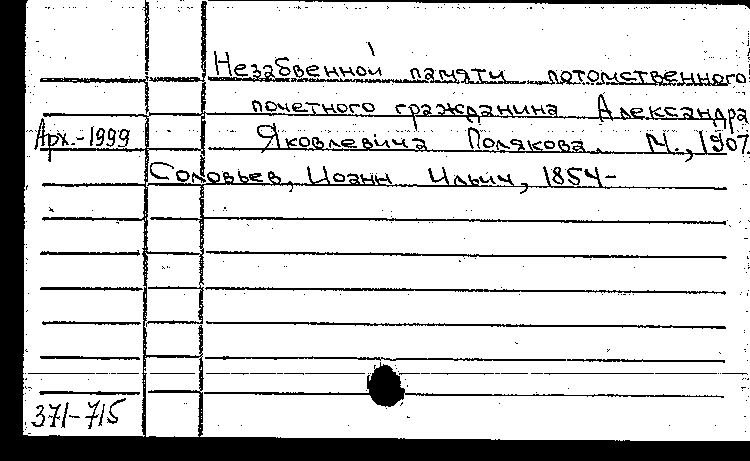 Незабвенной памяти потомственного
почетного гражданина Александра
Арх.-1999 Яковлевича Полякова. М., 1907.
Соловьев, Иоанн Ильич, 1854-
371-715